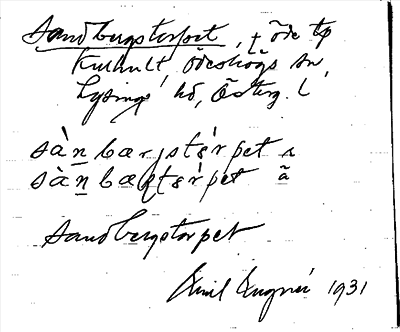 Sandbergstorpet, † öde tp
Kulhult, Ödeshögs sn,
Lysings hd, Österg. l
sàn bærjstɛ́rpet
sàn bæqtɛ́rpet ã
Sandbergstorpet
Emil 1931